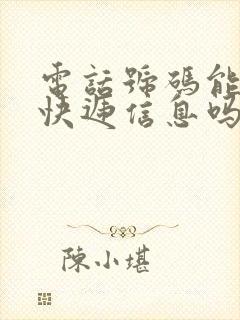 電話號碼能
快遞信息吗
陳小堪